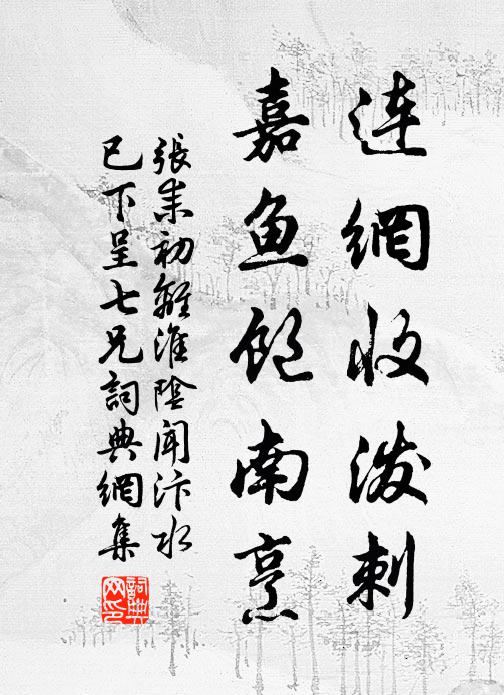 連網收潑刺
嘉魚飽南烹
張耒初離淮陰聞汴水
已下呈七兄詞典網集